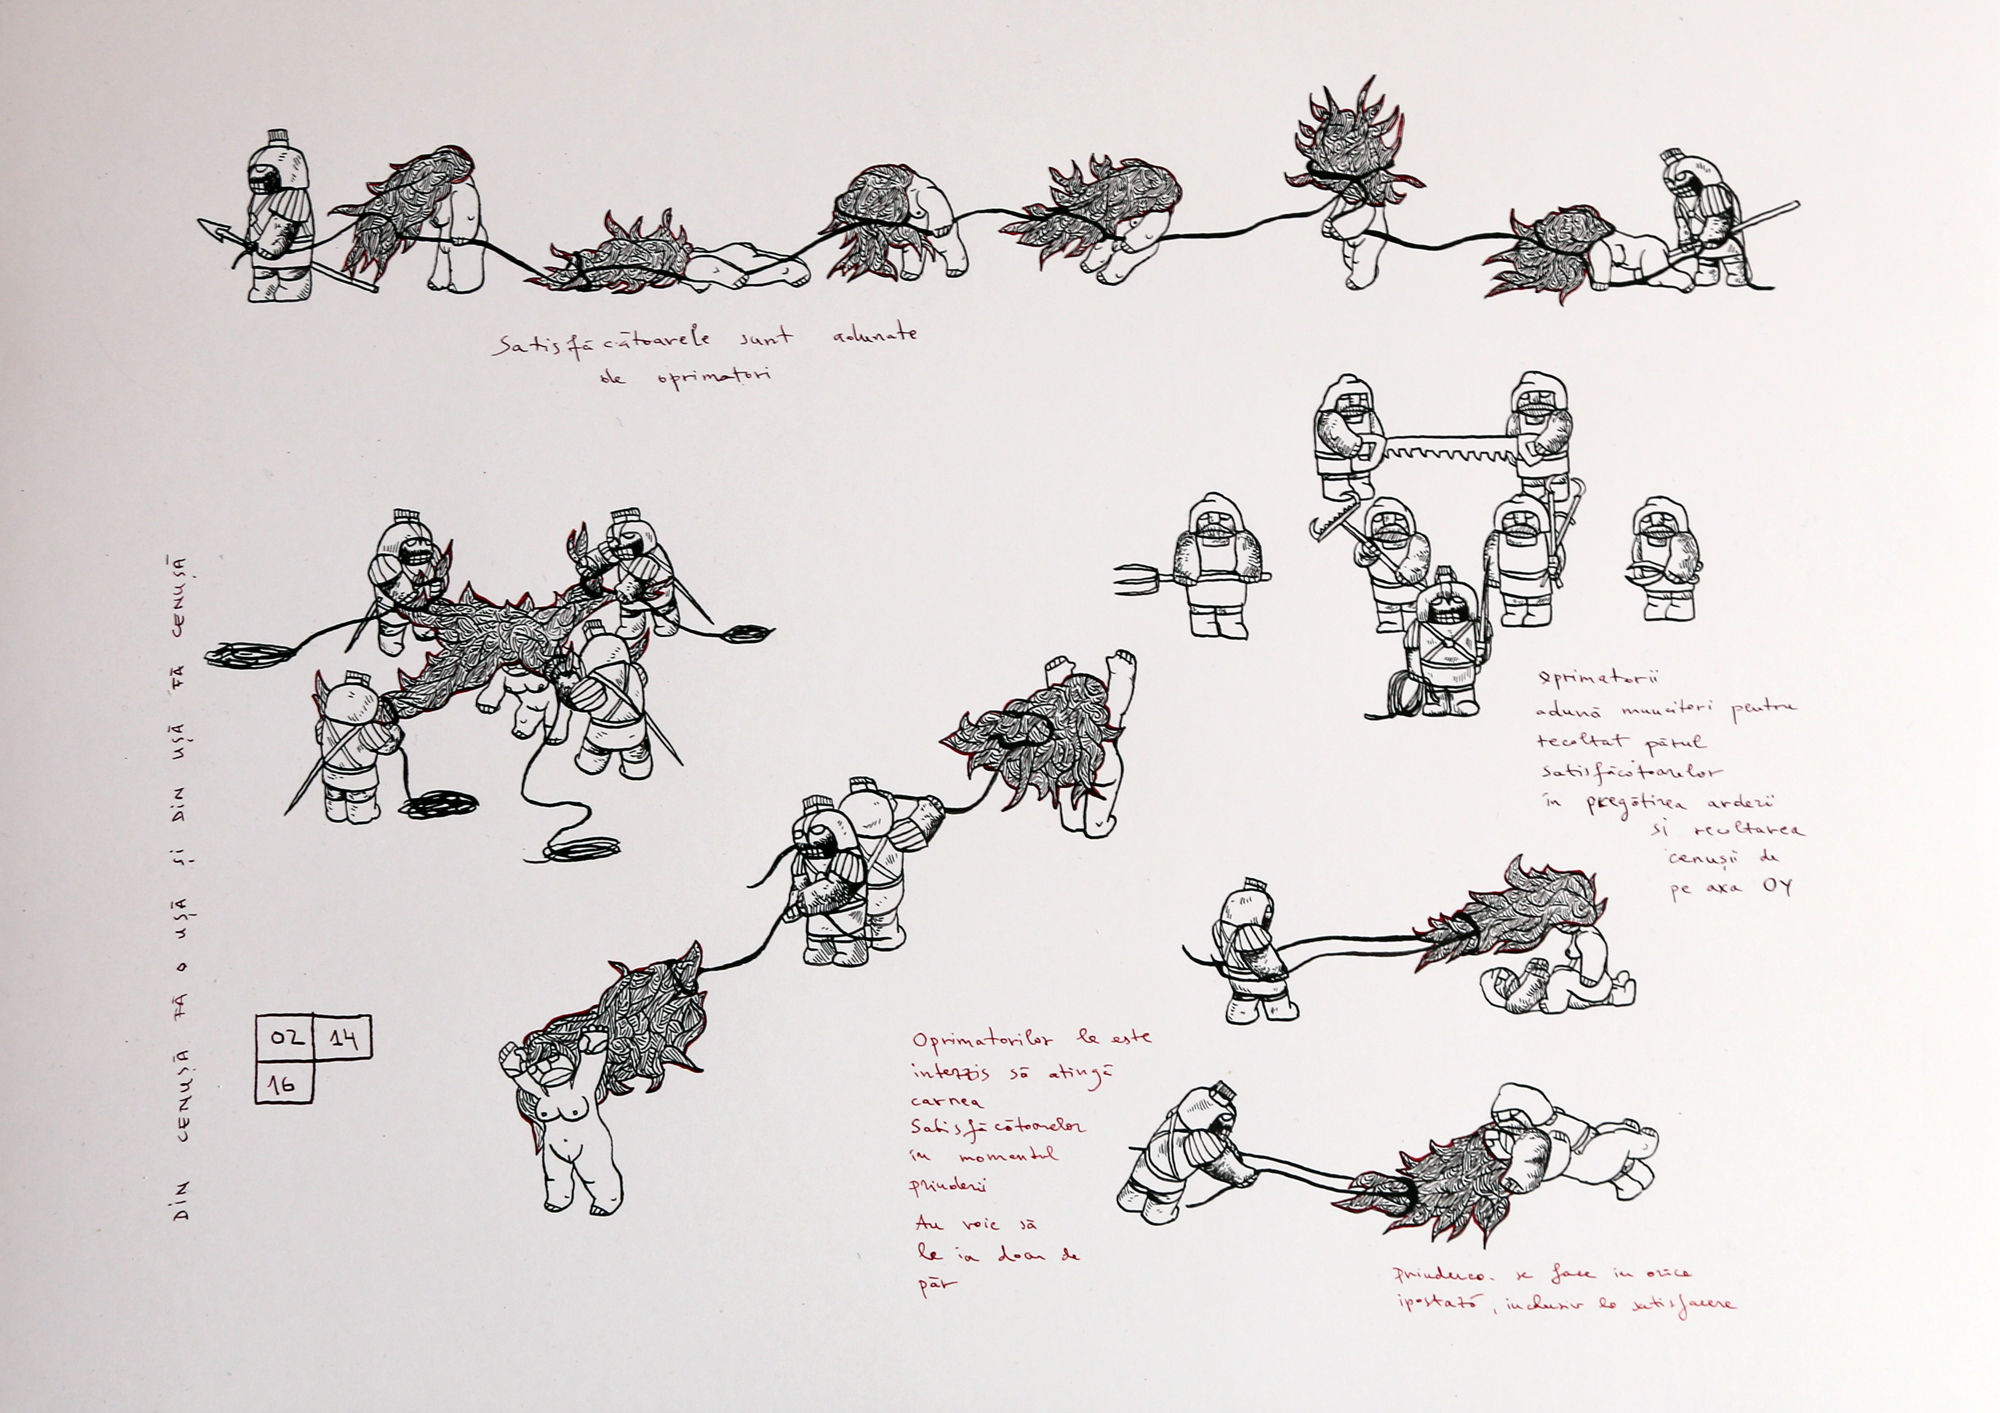 Satisfăcătoarele sunt adunate
de oprimatori
Oprimatorii
adună muncitori pentru
recoltat părul
satisfăcătoarelor
în pregătirea arderii
și recoltarea
cenușii de
pe axa OY
DIN CENUȘĂ FĂ O UȘĂ ȘI DIN UȘĂ FĂ CENUȘĂ
02 14
16
Oprimatorilor le este
interzis să atingă
carnea
Satisfăcătoarelor
în momentul
prinderii
Au voie să
le ia doar de
păr
Prinderea se face in orice
ipostază, inclusiv la satisfacere